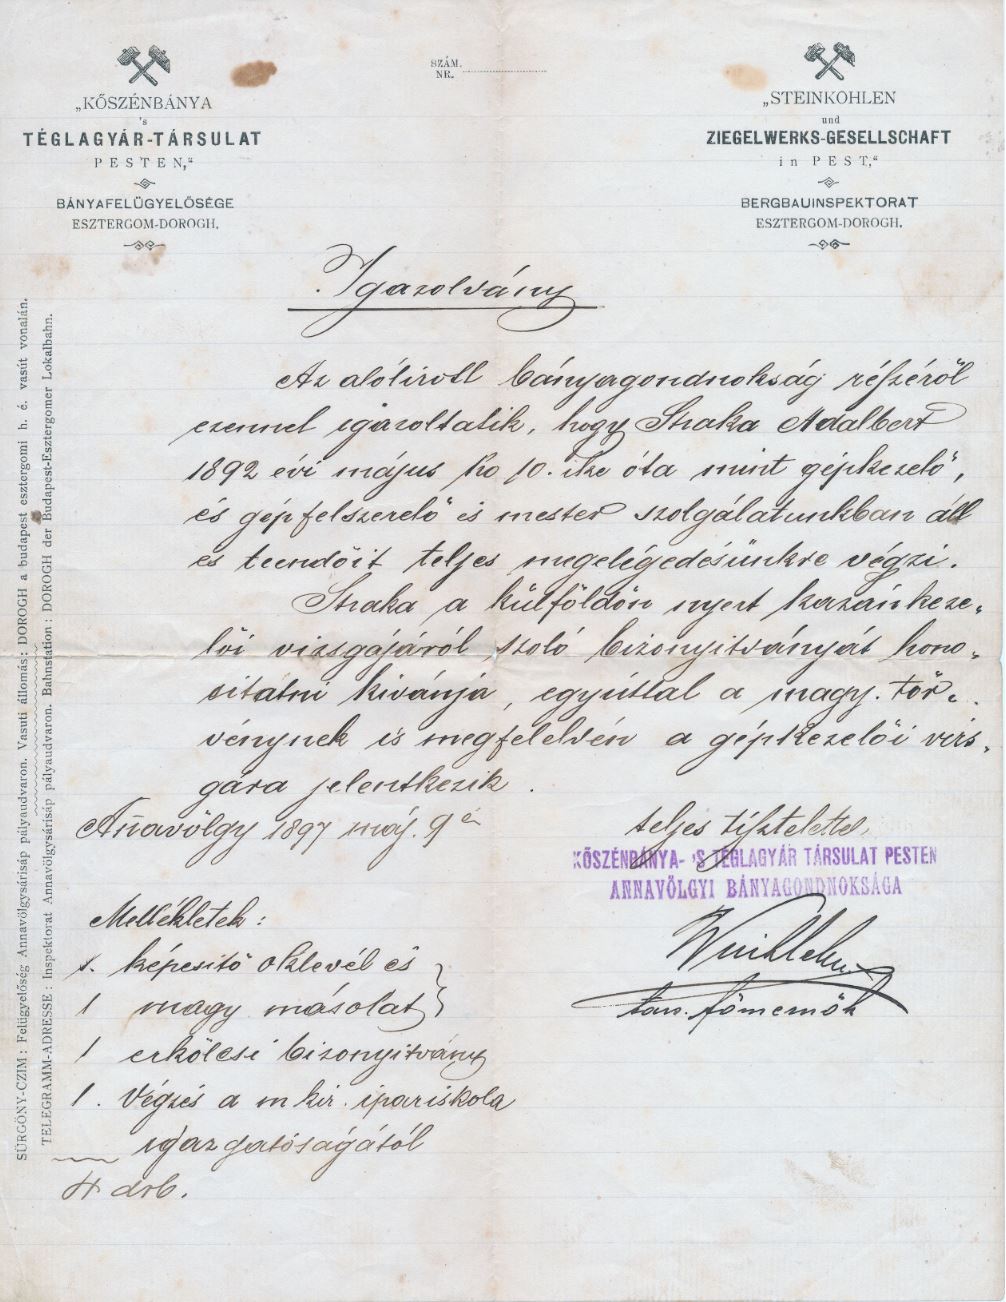 SZÁM.
NR.
„KŐSZÉNBÁNYA
's
TÉGLAGYÁR-TÁRSULAT
PESTEN,“
BÁNYAFELÜGYELŐSÉGE
ESZTERGOM-DOROGH.
„STEINKOHLEN
und
ZIEGELWERKS-GESELLSCHAFT
in PEST,“
BERGBAUINSPEKTORAT
ESZTERGOM-DOROGH.
SÜRGÖNY-CZIM: Felügyelőség Annavölgysárisáp pályaudvaron. Vasuti állomás: DOROGH a budapest esztergomi h. é. vasút vonalán.
TELEGRAMM-ADRESSE: Inspektorat Annavölgysárisáp pályaudvaron. Bahnstation: DOROGH der Budapest-Esztergomer Lokalbahn.
Igazolvány
Az alólirott bányagondnokság részéről
ezennel igazoltatik, hogy Straka Adalbert
1892 évi május ho 10. ike óta mint gépkezelő,
és gépfelszerelő és mester szolgálatunkban áll
és teendőit teljes megelégedésünkre végzi.
Straka a külföldön nyert kazánkeze-
lői vizsgájáról szoló bizonyitványát hono-
sitatni kivánja, egyúttal a magy. tör-
vénynek is megfelelvén a gépkezelői vizs-
gára jelentkezik.
Añavölgy 1897 máj. 9én
teljes tisztelettel,
KŐSZÉNBÁNYA- 'S TÉGLAGYÁR TÁRSULAT PESTEN
ANNAVÖLGYI BÁNYAGONDNOKSÁGA
főmérnök
Mellékletek:
1. képesitő oklevél és
1 magy másolat
1 erkölcsi bizonyitvány
1. Végzés a m kir. ipariskola
igazgatóságától
4 drb.